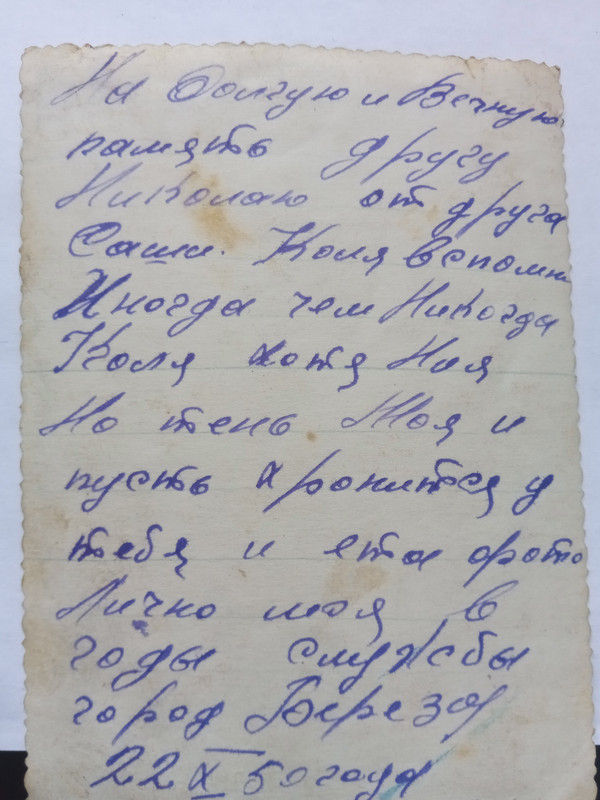 На Долгую и Вечную
память другу
Николаю от друга
Саши. Коля вспомни
Иногда чем Никогда
Коля хотя Ния
Но тень Моя и
пусть хронится у
тебя и ета фото
Лично моя в
годы службы
город Береза
22 X 50 года